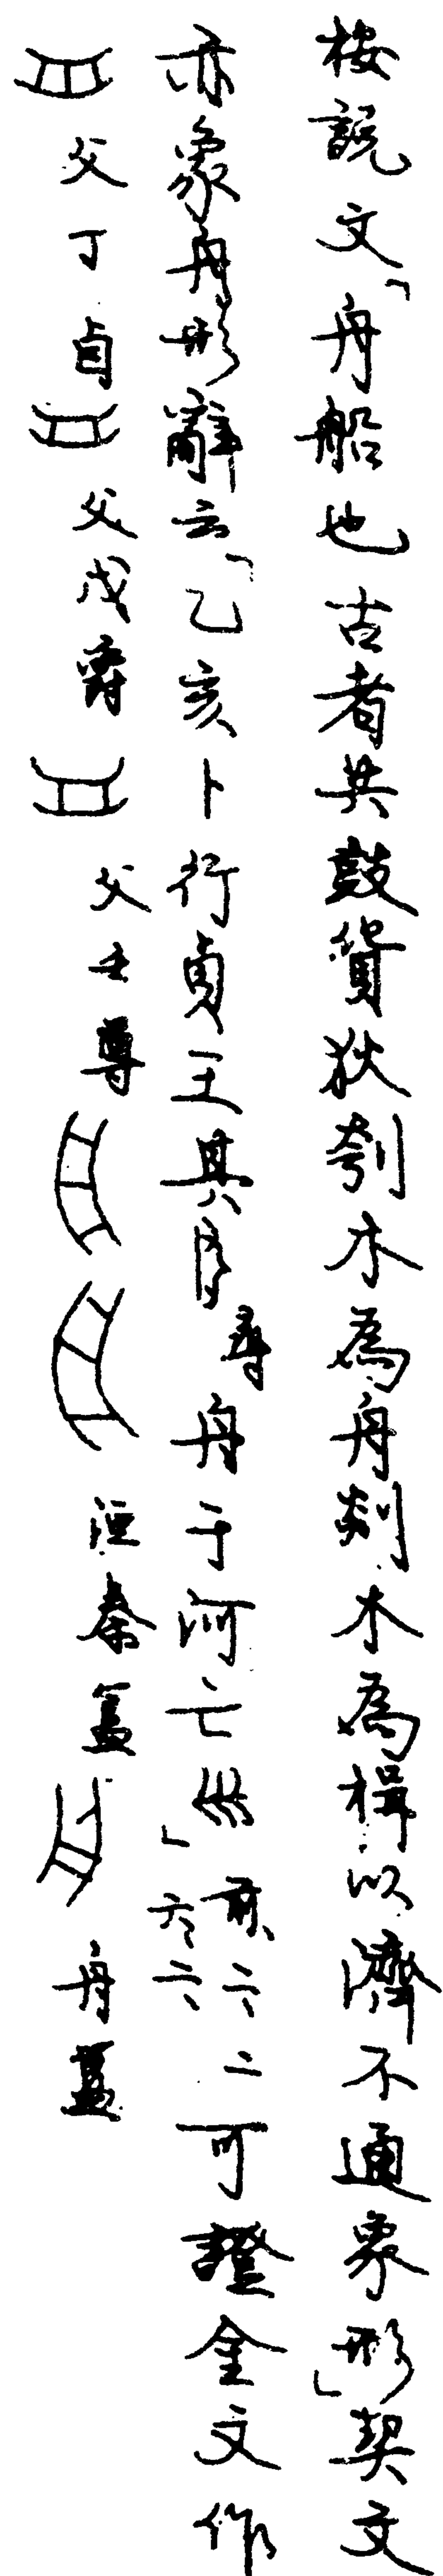 按說文「舟船也古者共鼓貨狄刳木為舟剡木為楫以濟不通象形」契文
亦象舟形辭云「乙亥卜行貞王其尋舟于河亡𡿧」前二六二六二可證金文作
父丁卣父戊爵父壬尊洹秦簋舟簋